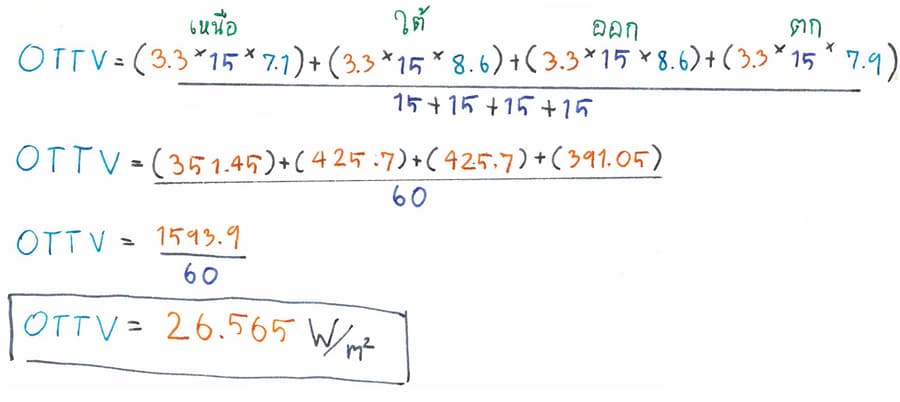 เหนือ ใต้ ออก ตก
OTTV = (3.3 × 15 × 7.1) + (3.3 × 15 × 8.6) + (3.3 × 15 × 8.6) + (3.3 × 15 × 7.9)
15 + 15 + 15 + 15
OTTV = (351.45) + (425.7) + (425.7) + (391.05)
60
OTTV = 1593.9
60
OTTV = 26.565 W/m²